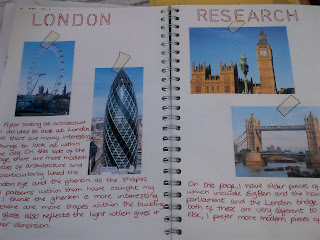 LONDON
RESEARCH
After looking at architecture
I decided to look at London
as there are many interesting
things to look at within
the City. On this side of the
page there are more modern
pieces of architecture and
I particularly liked the
london eye and the gherkin as the shapes
and patterns within them have caught my
I think the gherkin is more interesting
there are more shapes within the building
glass also reflects the light which gives it
other dimension.
On this page, I have older pieces of
which include BigBen and the hou
parliament and the London bridge
both of these are very different to
else, I prefer more modern pieces of